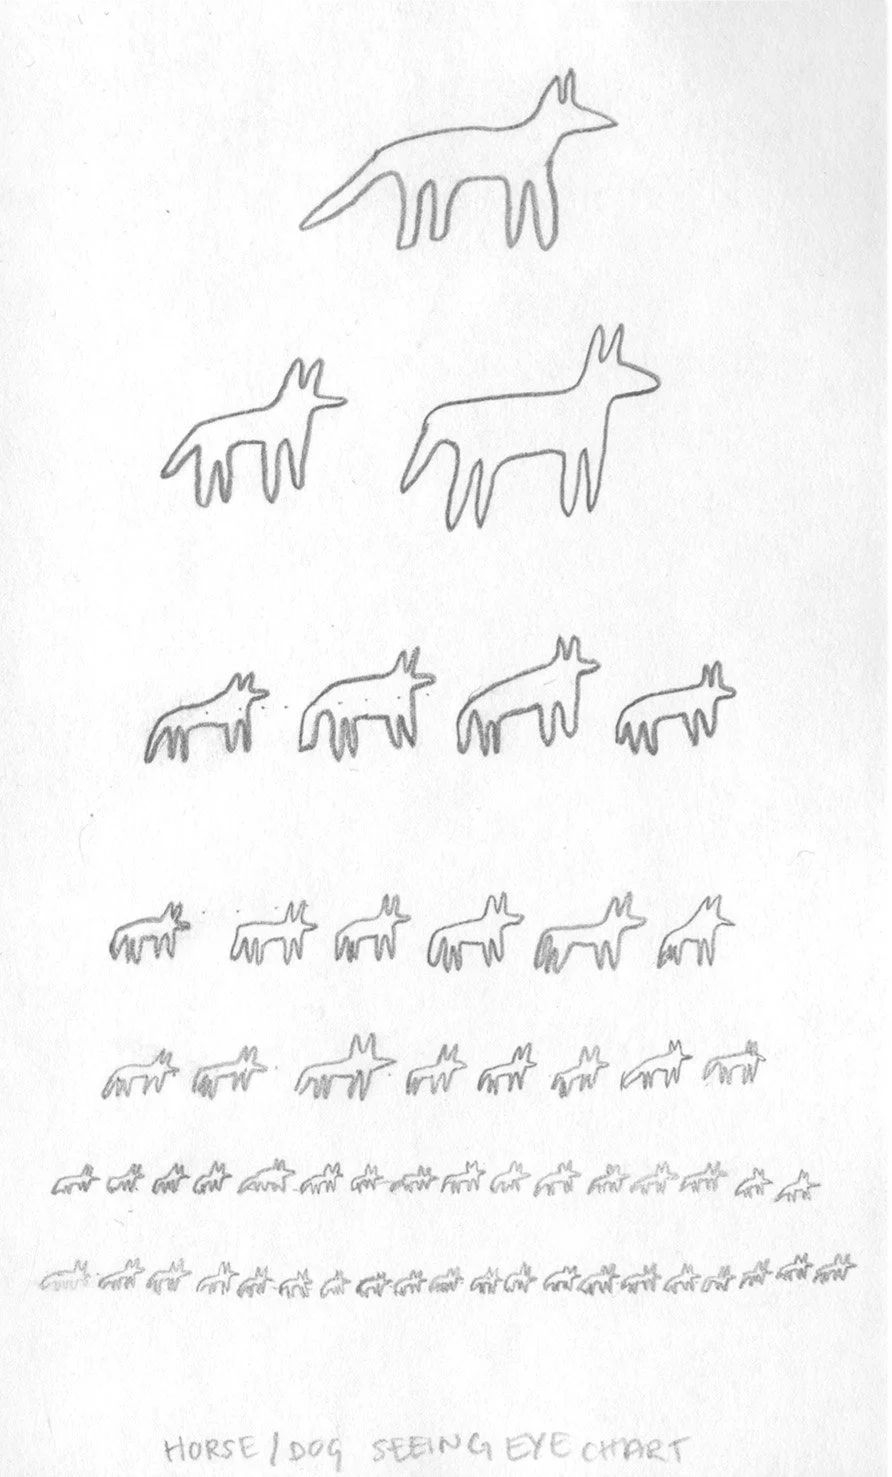 HORSE / DOG SEEING EYE CHART